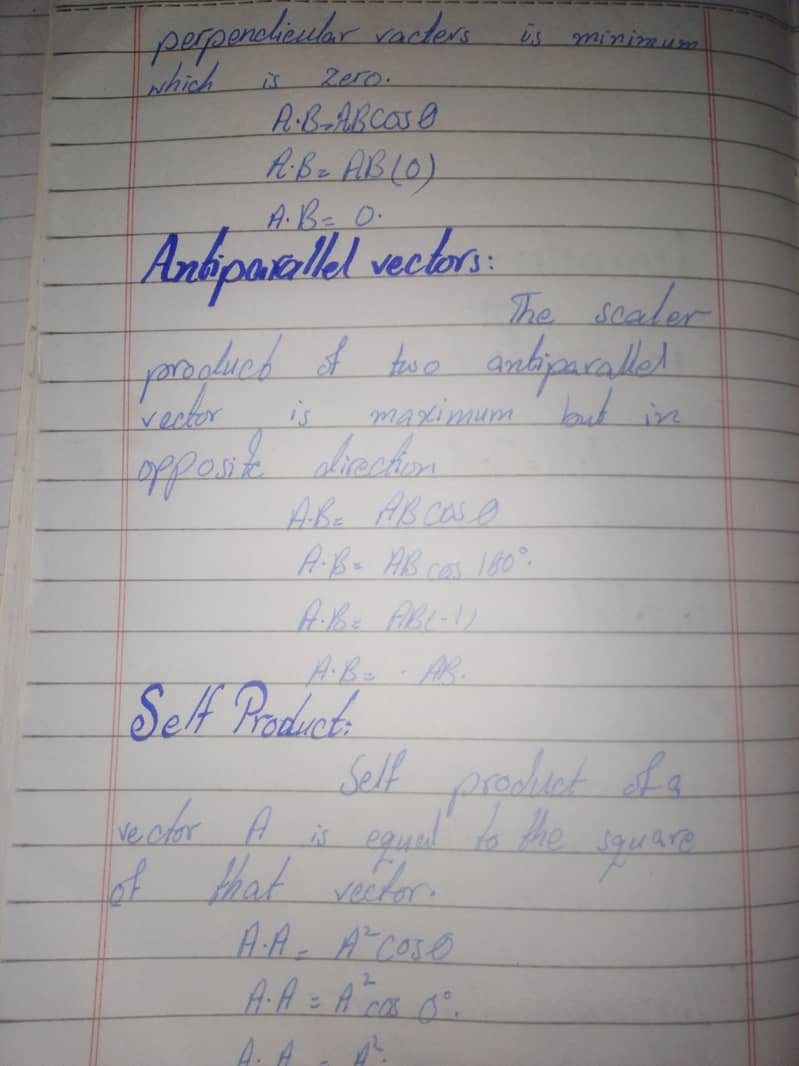 perpendicular vacters is minimum
which is zero.
A·B=ABCosθ
A·B= AB(0)
A·B= 0.
Antiparallel vectors:
The scaler
product of two antiparallel
vector is maximum but in
opposite direction
A·B= ABCosθ
A·B= AB cos 180°.
A·B= AB(-1)
A·B= - AB.
Self Product:
Self product of a
vector A is equal to the square
of that vector.
A·A= A²Cosθ
A·A = A²cos 0°.
A·A = A².